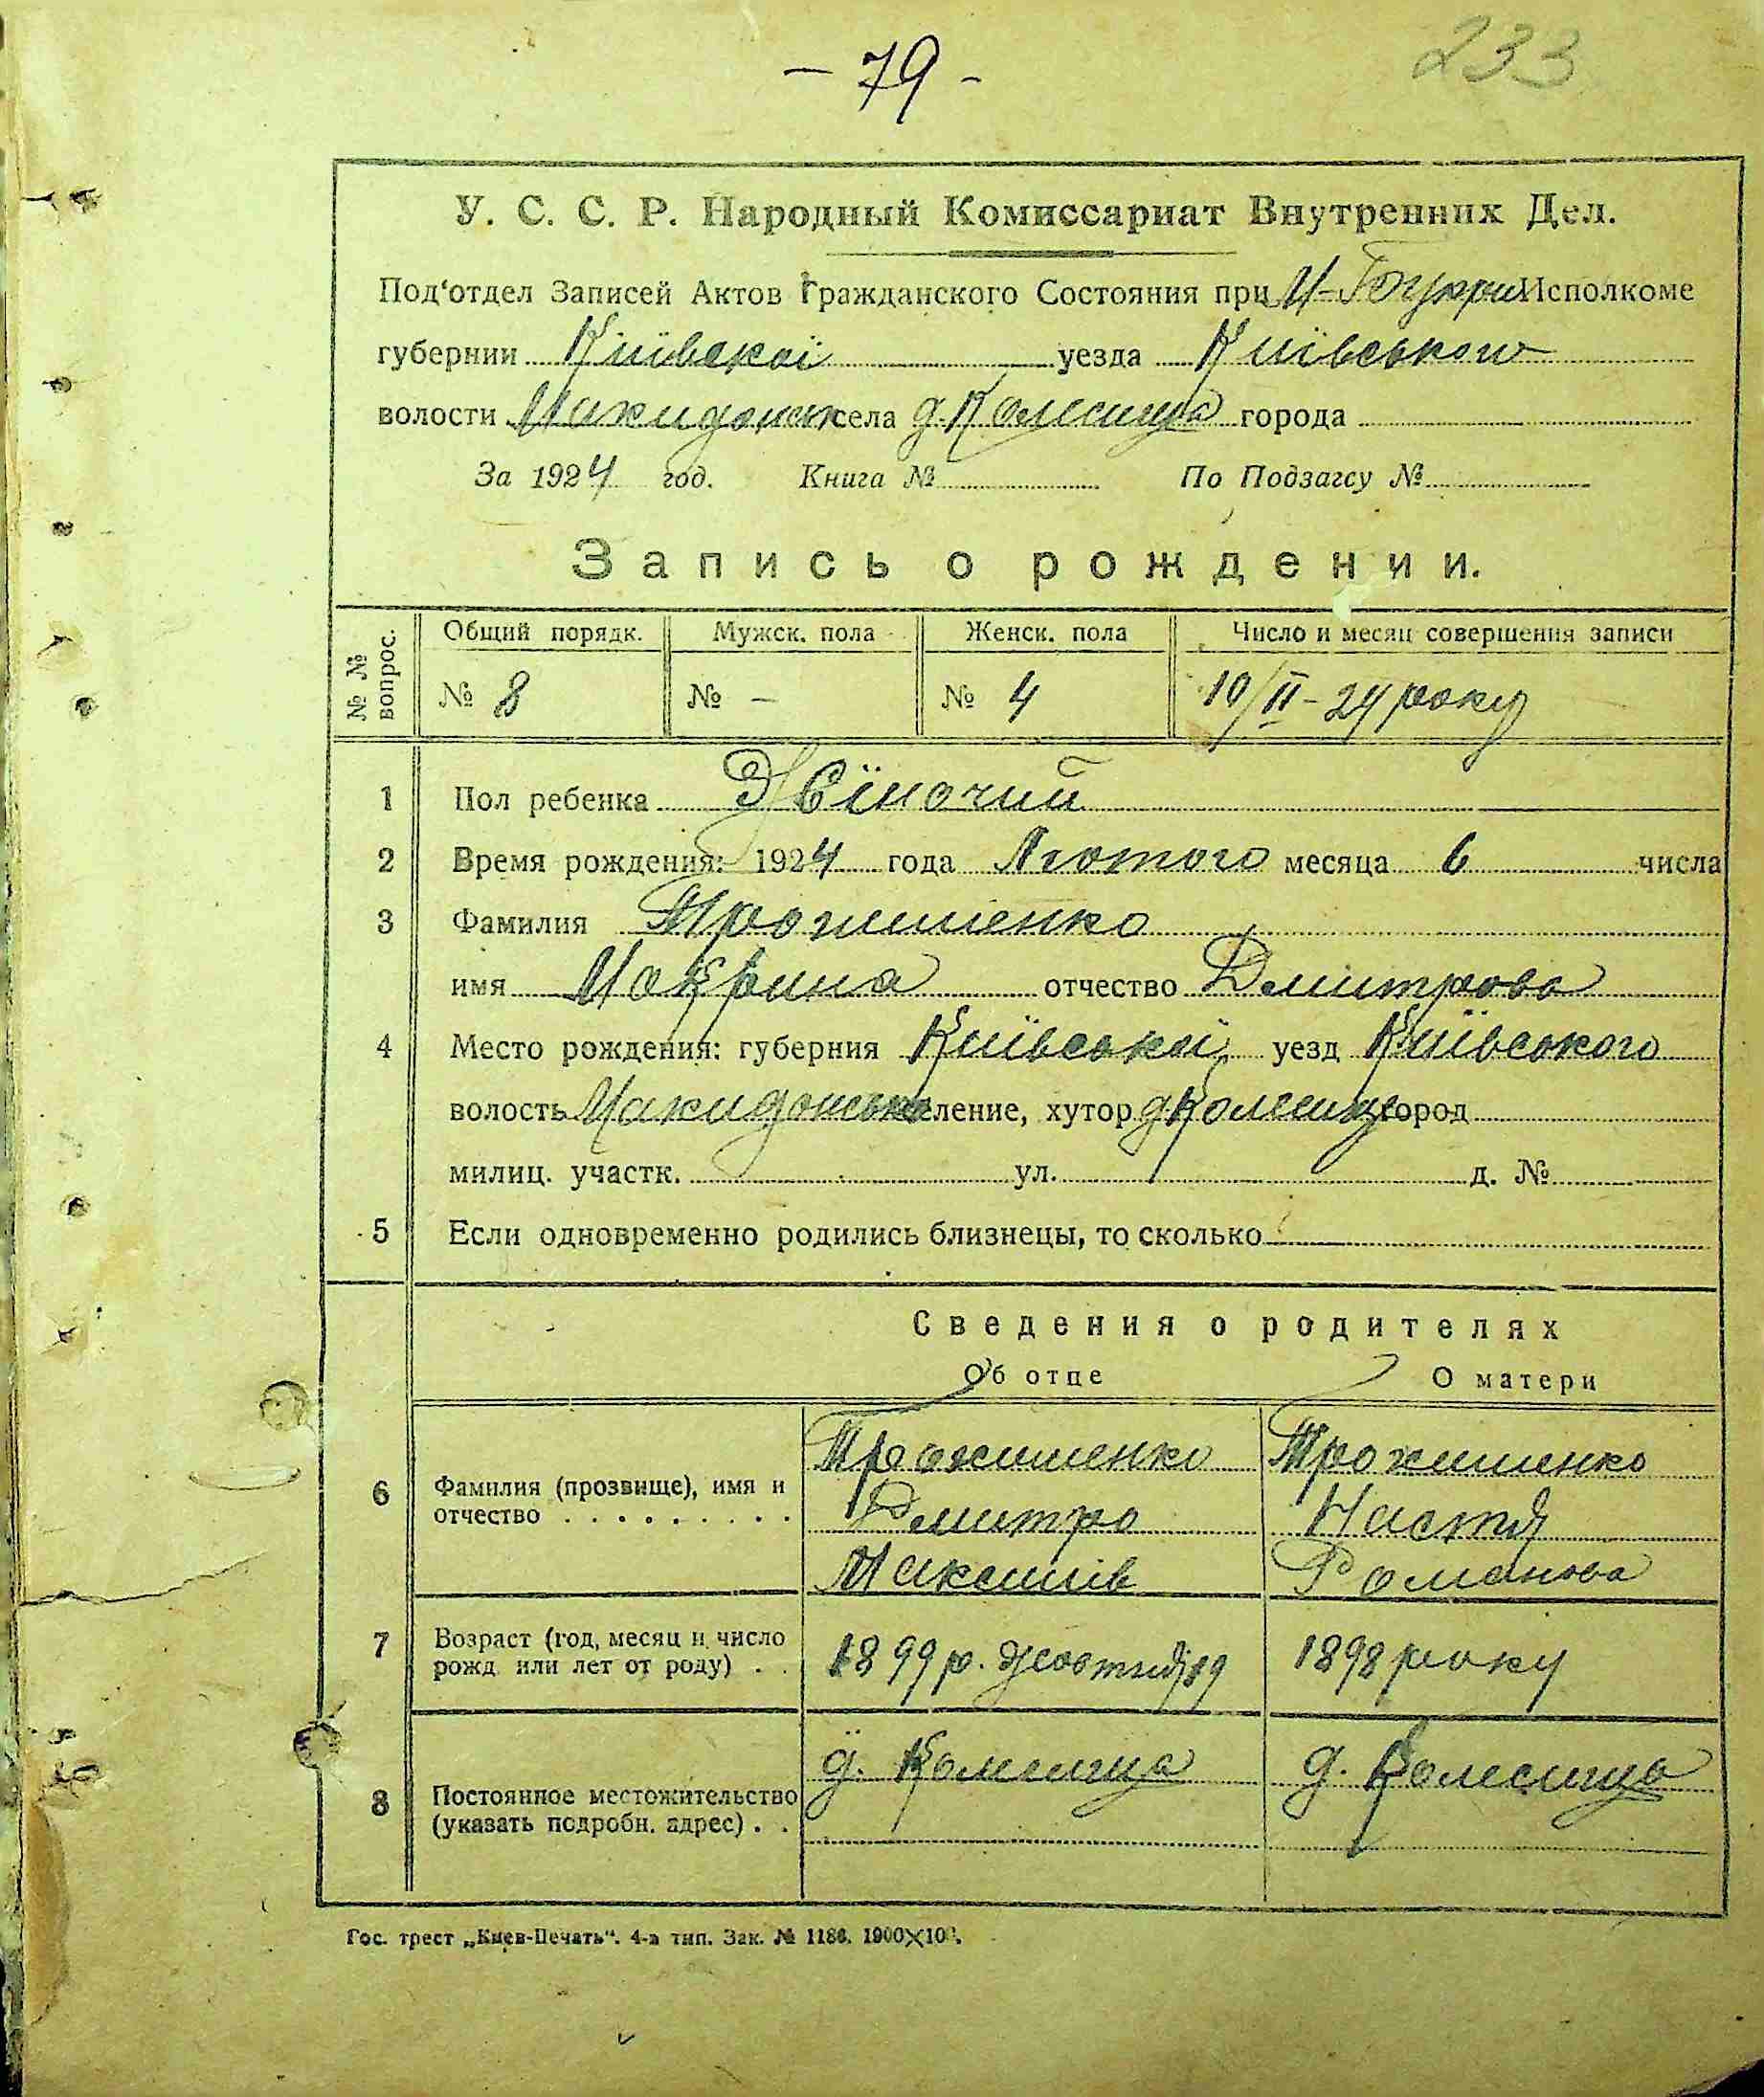 - 79 -
233
У. С. С. Р. Народный Комиссариат Внутренних Дел.
Под‘отдел Записей Актов Гражданского Состояния при Исполкоме
губернии Київскої уезда Київського
волости села д. Колесища города
За 1924 год. Книга № По Подзагсу №
Запись о рождении.
№ № вопрос.
Общий порядк. Мужск. пола Женск. пола Число и месяц совершения записи
№ 8 № - № 4 10/II - 24 року
1 Пол ребенка Жіночий
2 Время рождения: 1924 года Лютого месяца 6 числа
3 Фамилия Трохименко
имя Мокрина отчество Дмитрова
4 Место рождения: губерния Київської уезд Київського
волость селение, хутор д. Колесища город
милиц. участк. ул. д. №
5 Если одновременно родились близнецы, то сколько
Сведения о родителях
Об отце О матери
6 Фамилия (прозвище), имя и отчество
Трохименко Трохименко
Дмитро Настя
Максимів Романова
7 Возраст (год, месяц и число рожд. или лет от роду) . .
1899 р. Жовтня 19 1898 року
8 Постоянное местожительство (указать подробн. адрес) . .
д. Колесища д. Колесища
Гос. трест „Киев-Печать“. 4-а тип. Зак. № 1186. 1900×100.